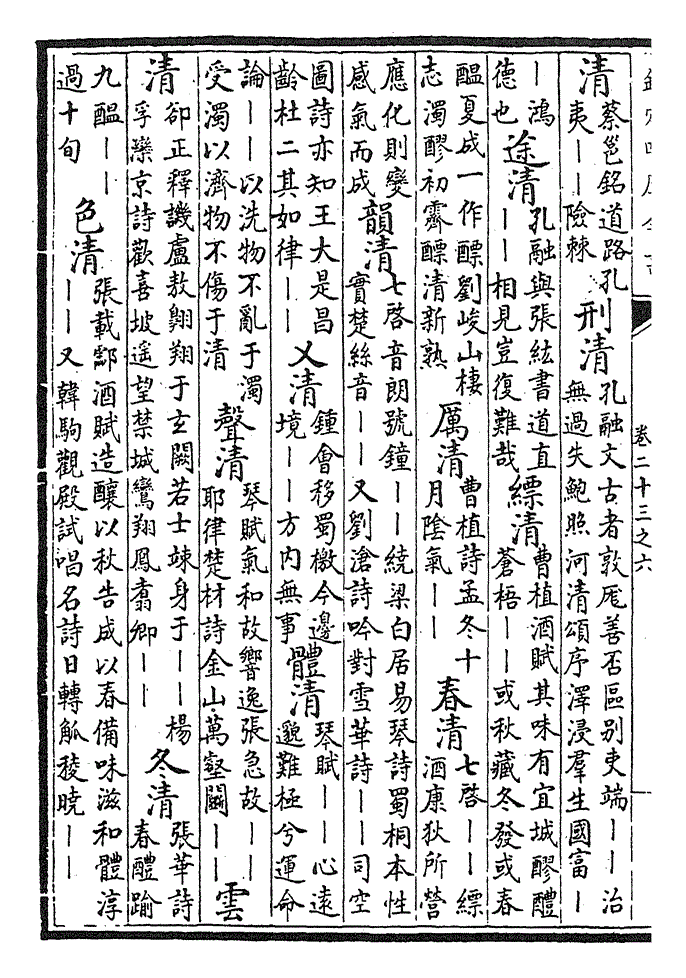 欽定四庫全書
卷二十三之六
清 蔡邕銘道路孔夷｜｜險棘 刑清 孔融文古者敦厖善否區别吏端｜｜治無過失鮑照河清頌序澤浸羣生國富｜
｜鴻德也 途清 孔融與張紘書道直｜｜相見豈復難哉 縹清 曹植酒賦其味有宜城醪醴蒼梧｜｜或秋藏冬發或春
醖夏成一作醥劉峻山棲志濁醪初霽醥清新熟 厲清 曹植詩孟冬十月陰氣｜｜ 春清 七啓｜｜縹酒康狄所營
應化則變感氣而成 韻清 七啓音朗號鐘｜｜繞梁白居易琴詩蜀桐本性實楚絲音｜｜又劉滄詩吟對雪華詩｜｜司空
圖詩亦知王大是昌齡杜二其如律｜｜ 乂清 鍾會移蜀檄今邊境｜｜方内無事 體清 琴賦｜｜心遠邈難極兮運命
論｜｜以洗物不亂于濁受濁以濟物不傷于清 聲清 琴賦氣和故響逸張急故｜｜耶律楚材詩金山萬壑鬭｜｜ 雲
清 卻正釋譏盧敖翺翔于玄闕若士竦身于｜｜楊孚欒京詩歡喜坡遥望禁城鸞翔鳳翥卿｜｜ 冬清 張華詩春醴踰
九醖｜｜過十旬 色清 張載酃酒賦造釀以秋告成以春備味滋和體淳｜｜又韓駒觀殿試唱名詩日轉觚稜曉｜｜